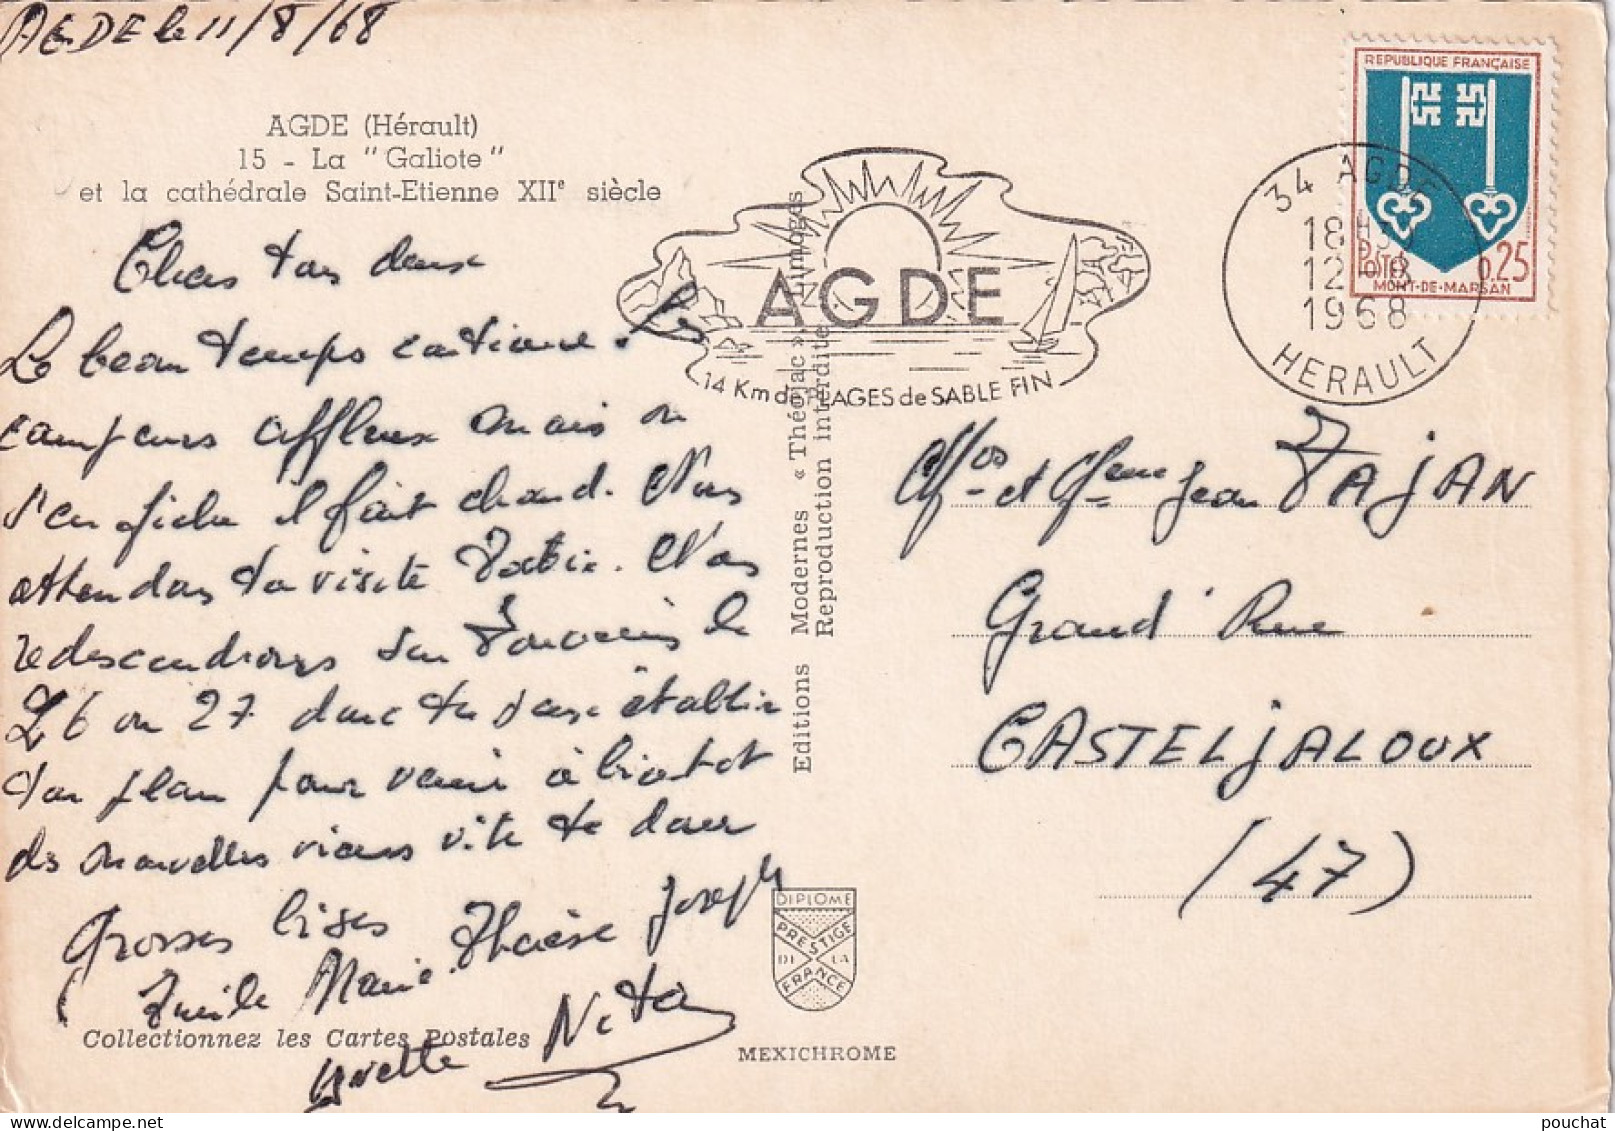 AGDE le 11/8/68
AGDE (Hérault)
15 - La "Galiote"
et la cathédrale Saint-Etienne XIIe siècle
Chers tous deux
Le beau temps continue. Les
campeurs affluex mais on
s'en fiche il fait chaud. Nous
attendons ta visite. Nous
redescendrons sur le
26 ou 27 donc tu peux établir
ton plan pour venir à bientot
des nouvelles viens vite te dorer
Grosses bises
Emile Marie-Thérèse Joseph
Yvette Nita
Collectionnez les Cartes Postales
Editions Modernes « Théojac » Limoges
Reproduction interdite
DIPLOME
PRESTIGE
DE LA
FRANCE
MEXICHROME
AGDE
14 Km de PLAGES de SABLE FIN
34 AGDE
18H
12
1968
HERAULT
REPUBLIQUE FRANÇAISE
POSTES
0,25
MONT-DE-MARSAN
Mr et Mme Jean TAJAN
Grand' Rue
CASTELJALOUX
(47)
pouchat